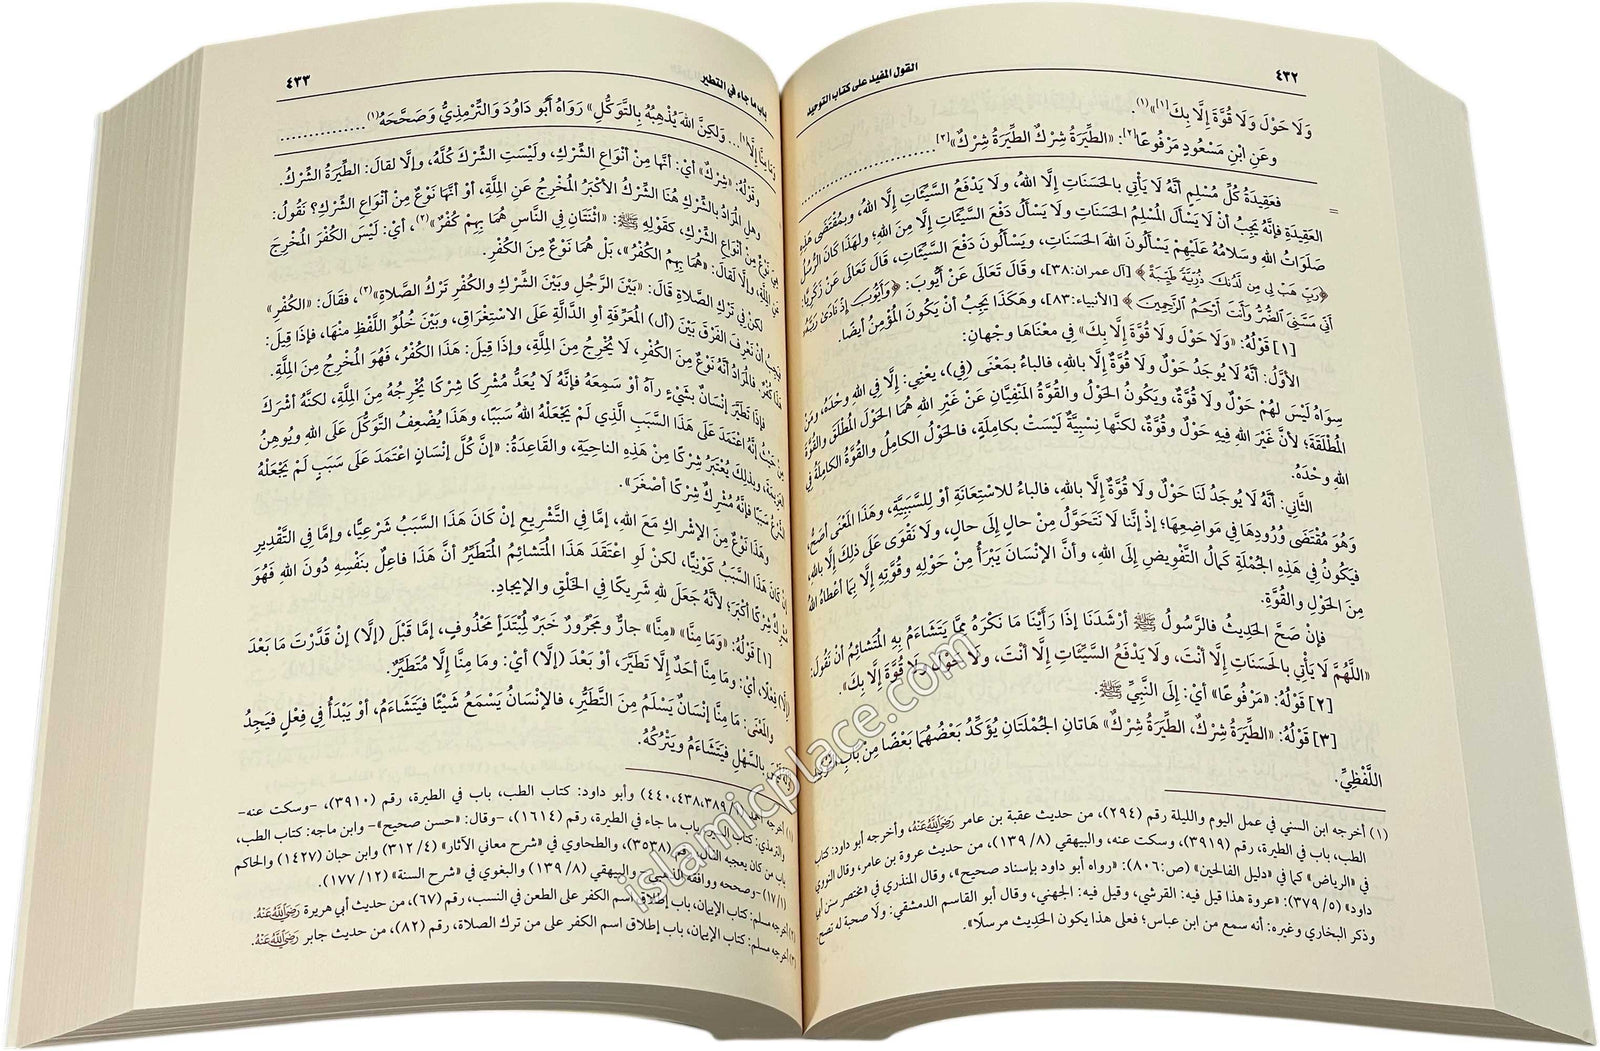 ٤٣٢
القول المفيد على كتاب التوحيد
وَلَا حَوْلَ وَلَا قُوَّةَ إِلَّا بِكَ[١]»(١).
وعَنِ ابْنِ مَسْعُودٍ مَرْفُوعًا[٢]: «الطِّيَرَةُ شِرْكٌ الطِّيَرَةُ شِرْكٌ»[٣]......................
= فعَقِيدَةُ كُلِّ مُسْلِمٍ أنَّهُ لَا يَأْتِي بالحَسَنَاتِ إِلَّا اللهُ، ولَا يَدْفَعُ السَّيِّئَاتِ إِلَّا اللهُ، وبمُقْتَضَى هَذِهِ
العَقِيدَةِ فإنَّهُ يَجِبُ أنْ لَا يَسْأَلَ المُسْلِمُ الحَسَنَاتِ ولَا يَسْأَلَ دَفْعَ السَّيِّئَاتِ إلَّا مِنَ اللهِ؛ ولهَذَا كَانَ الرُّسُلُ
صَلَوَاتُ اللهِ وسَلَامُهُ عَلَيْهِم يَسْأَلُونَ اللهَ الحَسَنَاتِ، ويَسْأَلُونَ دَفْعَ السَّيِّئَاتِ، قَالَ تَعَالَى عَنْ زَكَرِيَّا:
﴿رَبِّ هَبْ لِي مِن لَّدُنكَ ذُرِّيَّةً طَيِّبَةً﴾ [آل عمران:٣٨]، وقَالَ تَعَالَى عَنْ أيُّوبَ: ﴿وَأَيُّوبَ إِذْ نَادَىٰ رَبَّهُ
أَنِّي مَسَّنِيَ الضُّرُّ وَأَنتَ أَرْحَمُ الرَّاحِمِينَ﴾ [الأنبياء:٨٣]، وهَكَذَا يَجِبُ أنْ يَكُونَ المُؤْمِنُ أيضًا.
[١] قَوْلُهُ: «وَلَا حَوْلَ وَلَا قُوَّةَ إِلَّا بِكَ» فِي معْنَاهَا وجْهانِ:
الأوَّلُ: أنَّهُ لَا يُوجَدُ حَوْلٌ ولَا قُوَّةٌ إلَّا باللهِ، فالباءُ بمَعْنَى (فِي)، يعْنِي: إلَّا فِي اللهِ وحْدَهُ، ومَنْ
سِوَاهُ لَيْسَ لهُمْ حَوْلٌ ولَا قُوَّةٌ، ويكُونُ الحَوْلُ والقُوَّةُ المَنْفِيَّانِ عَنْ غَيْرِ اللهِ هُمَا الحَوْلَ المُطْلَقَ والقُوَّةَ
المُطْلَقَةَ؛ لأنَّ غَيْرَ اللهِ فِيهِ حَوْلٌ وقُوَّةٌ، لكنَّهَا نِسْبِيَّةٌ لَيْسَتْ بكَامِلَةٍ، فالحَوْلُ الكامِلُ والقُوَّةُ الكامِلَةُ فِي
اللهِ وحْدَهُ.
الثَّانِي: أنَّهُ لَا يُوجَدُ لَنَا حَوْلٌ ولَا قُوَّةٌ إلَّا باللهِ، فالباءُ للاسْتِعَانَةِ أوْ للسَّبَبِيَّةِ، وهَذَا المَعْنَى أصَحُّ،
وهُوَ مُقْتَضَى وُرُودِهَا فِي مَوَاضِعِهَا؛ إذْ إنَّنا لَا نَتَحَوَّلُ مِنْ حالٍ إلَى حالٍ، ولَا نَقْوَى عَلَى ذلِكَ إلَّا باللهِ،
فيَكُونُ فِي هَذِهِ الجُمْلَةِ كمَالُ التَّفْوِيضِ إلَى اللهِ، وأنَّ الإنْسَانَ يَبْرَأُ مِنْ حَوْلِهِ وقُوَّتِهِ إلَّا بمَا أعْطَاهُ اللهُ
مِنَ الحَوْلِ والقُوَّةِ.
فإنْ صَحَّ الحَدِيثُ فالرَّسُولُ ﷺ أرْشَدَنَا إذَا رَأَيْنَا مَا نَكْرَهُ ممَّا يَتَشَاءَمُ بِهِ المُتَشَائِمُ أنْ نَقُولَ:
«اللَّهُمَّ لَا يَأْتِي بالحَسَنَاتِ إلَّا أنْتَ، ولَا يَدْفَعُ السَّيِّئَاتِ إلَّا أنْتَ، ولَا حَوْلَ ولَا قُوَّةَ إلَّا بِكَ».
[٢] قَوْلُهُ: «مَرْفُوعًا» أيْ: إلَى النَّبِيِّ ﷺ.
[٣] قَوْلُهُ: «الطِّيَرَةُ شِرْكٌ، الطِّيَرَةُ شِرْكٌ» هَاتانِ الجُمْلَتانِ يُؤَكِّدُ بَعْضُهُمَا بَعْضًا مِن بابِ التَّوْكِيدِ
اللَّفْظِيِّ.
(١) أخرجه ابن السني في عمل اليوم والليلة رقم (٢٩٤)، من حديث عقبة بن عامر رَضِيَ اللَّهُ عَنْهُ، وأخرجه أبو داود: كتاب
الطب، باب في الطيرة، رقم (٣٩١٩)، وسكت عنه، والبيهقي (٨/ ١٣٩)، من حديث عروة بن عامر، وقال النووي
في «الرياض» كما في «دليل الفالحين» (ص:٨٠٦): «رواه أبو داود بإسناد صحيح»، وقال المنذري في «مختصر سنن أبي
داود» (٥/ ٣٧٩): «عروة هذا قيل فيه: القرشي، وقيل فيه: الجهني، وقال أبو القاسم الدمشقي: ولا صحبة له تصح،
وذكر البخاري وغيره: أنه سمع من ابن عباس؛ فعلى هذا يكون الحديث مرسلًا».
باب ما جاء في التطير
٤٣٣
وَمَا مِنَّا إِلَّا[١]... وَلَكِنَّ اللهَ يُذْهِبُهُ بِالتَّوَكُّلِ» رَوَاهُ أَبُو دَاوُدَ وَالتِّرْمِذِيُّ وَصَحَّحَهُ(١)...............
وقَوْلُهُ: «شِرْكٌ» أيْ: أنَّها مِنْ أنْوَاعِ الشِّرْكِ، ولَيْسَتِ الشِّرْكَ كُلَّهُ، وإلَّا لقَالَ: الطِّيَرَةُ الشِّرْكُ.
وهلِ المُرَادُ بالشِّرْكِ هُنَا الشِّرْكُ الأكْبَرُ المُخْرِجُ عَنِ المِلَّةِ، أوْ أنَّها نَوْعٌ مِنْ أنْوَاعِ الشِّرْكِ؟ نَقُولُ:
هِيَ نَوْعٌ مِنْ أنْوَاعِ الشِّرْكِ، كقَوْلِهِ ﷺ: «اثْنَتَانِ فِي النَّاسِ هُمَا بِهِمْ كُفْرٌ»(٢)، أيْ: لَيْسَ الكُفْرَ المُخْرِجَ
عَنِ المِلَّةِ، وإلَّا لقَالَ: «هُمَا بِهِمُ الكُفْرُ»، بَلْ هُمَا نَوْعٌ مِنَ الكُفْرِ.
لكنْ فِي تَرْكِ الصَّلَاةِ قَالَ: «بَيْنَ الرَّجُلِ وبَيْنَ الشِّرْكِ والكُفْرِ تَرْكُ الصَّلاةِ»(٣)، فقَالَ: «الكُفْرِ»
فيَجِبُ أنْ نَعْرِفَ الفَرْقَ بَيْنَ (أل) المُعَرِّفَةِ أو الدَّالَّةِ عَلَى الاسْتِغْرَاقِ، وبَيْنَ خُلُوِّ اللَّفْظِ منْهَا، فإذَا قِيلَ:
هَذَا كُفْرٌ، فالمُرَادُ أنَّهُ نَوْعٌ مِنَ الكُفْرِ، لَا يُخْرِجُ مِنَ المِلَّةِ، وإذَا قِيلَ: هَذَا الكُفْرُ، فَهُوَ المُخْرِجُ مِنَ المِلَّةِ.
فإذَا تَطَيَّرَ إنسَانٌ بشَيْءٍ رآهُ أوْ سَمِعَهُ فإنَّهُ لَا يُعَدُّ مُشْرِكًا شِرْكًا يُخْرِجُهُ مِنَ المِلَّةِ، لكنَّهُ أشْرَكَ
مِنْ حَيْثُ إنَّهُ اعْتَمَدَ عَلَى هَذَا السَّبَبِ الَّذِي لَمْ يَجْعَلْهُ اللهُ سَبَبًا، وهَذَا يُضْعِفُ التَّوَكُّلَ عَلَى اللهِ ويُوهِنُ
العَزِيمَةَ، وبذلِكَ يُعْتَبَرُ شِرْكًا مِنْ هَذِهِ الناحِيَةِ، والقَاعِدَةُ: «إنَّ كُلَّ إنْسَانٍ اعْتَمَدَ عَلَى سَبَبٍ لَمْ يَجْعَلْهُ
الشَّرْعُ سَبَبًا فإنَّهُ مُشْرِكٌ شِرْكًا أصْغَرَ».
وهَذَا نَوْعٌ مِنَ الإشْراكِ مَعَ اللهِ، إمَّا فِي التَّشْرِيعِ إنْ كَانَ هَذَا السَّبَبُ شَرْعِيًّا، وإمَّا فِي التَّقْدِيرِ
إنْ كَانَ هَذَا السَّبَبُ كَوْنِيًّا، لكنْ لَوِ اعْتَقَدَ هَذَا المُتَشَائِمُ المُتَطَيِّرُ أنَّ هَذَا فاعِلٌ بنَفْسِهِ دُونَ اللهِ فَهُوَ
مُشْرِكٌ شِرْكًا أكْبَرَ؛ لأنَّهُ جَعَلَ للهِ شَرِيكًا فِي الخَلْقِ والإيجادِ.
[١] قَوْلُهُ: «وَمَا مِنَّا» «مِنَّا» جارٌّ ومَجْرُورٌ خَبَرٌ لمُبْتَدَأٍ مَحْذُوفٍ، إمَّا قَبْلَ (إلَّا) إنْ قَدَّرْتَ مَا بَعْدَ
(إلَّا) فِعْلًا، أيْ: ومَا مِنَّا أحَدٌ إلَّا تَطَيَّرَ، أوْ بَعْدَ (إلَّا) أيْ: ومَا مِنَّا إلَّا مُتَطَيِّرٌ.
والمَعْنَى: مَا مِنَّا إنْسَانٌ يَسْلَمُ مِنَ التَّطَيُّرِ، فالإنْسَانُ يَسْمَعُ شَيْئًا فيَتَشَاءَمُ، أوْ يَبْدَأُ فِي فِعْلٍ فيَجِدُ
بالسَّهْلِ فيَتَشَاءَمُ ويَتْرُكُهُ.
(١) أخرجه أحمد ٣٨٩، ٤٣٨، ٤٤٠) وأبو داود: كتاب الطب، باب في الطيرة، رقم (٣٩١٠)، -وسكت عنه-
والترمذي: كتاب السير، باب ما جاء في الطيرة، رقم (١٦١٤)، -وقال: «حسن صحيح»- وابن ماجه: كتاب الطب،
باب من كان يعجبه الفأل، رقم (٣٥٣٨)، والطحاوي في «شرح معاني الآثار» (٤/ ٣١٢) وابن حبان (١٤٢٧) والحاكم
(١/ ١٧) -وصححه ووافقه الذهبي- والبيهقي (٨/ ١٣٩) والبغوي في «شرح السنة» (١٢/ ١٧٧).
(٢) أخرجه مسلم: كتاب الإيمان، باب إطلاق اسم الكفر على الطعن في النسب، رقم (٦٧)، من حديث أبي هريرة رَضِيَ اللَّهُ عَنْهُ.
(٣) أخرجه مسلم: كتاب الإيمان، باب إطلاق اسم الكفر على من ترك الصلاة، رقم (٨٢)، من حديث جابر رَضِيَ اللَّهُ عَنْهُ.
islamicplace.com